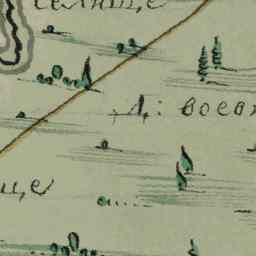 селище
д: воев
ще